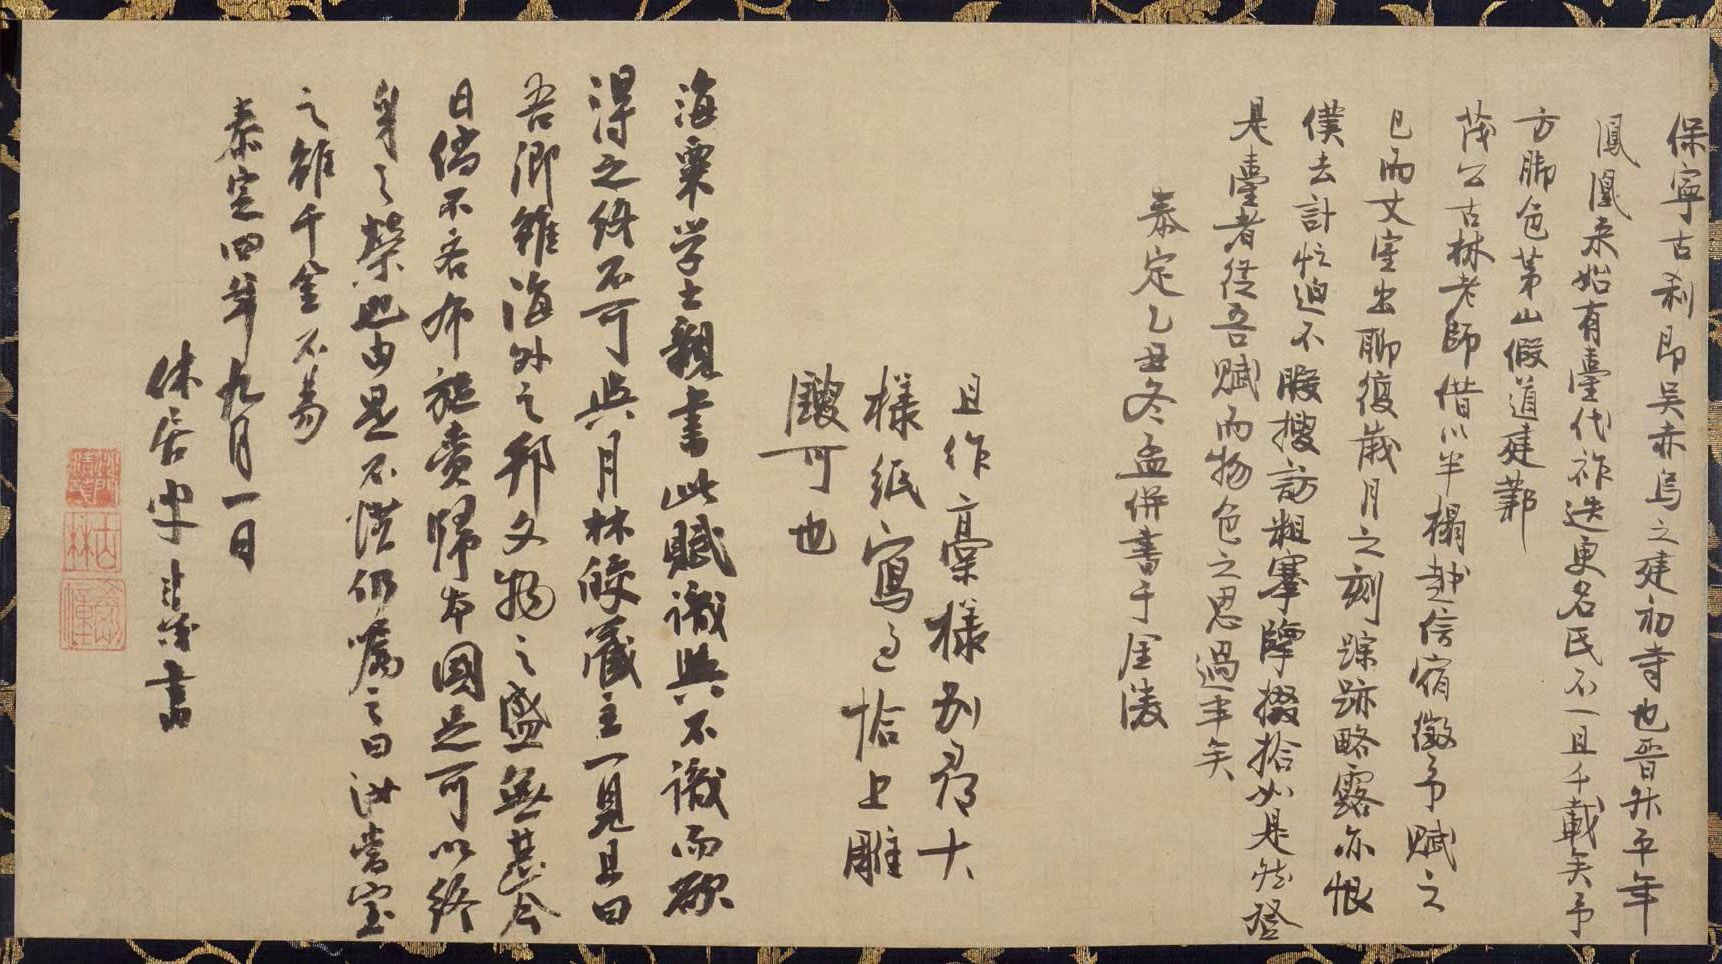 保寧古刹即吴赤烏之建初寺也晉昇平年
鳳凰来始有臺代祚迭更名氏不一且千載矣予
方脚色茅山假道建鄴
茂公古林老師借以半榻越信宿徵予賦之
已而丈室出聊復歲月之刻踪跡略露亦恨
僕去計忙迫不暇搜訪粗搴障掇拾如是然登
是臺者從吾賦而物色之思過半矣
泰定乙丑冬孟併書于金陵
且作稾樣別尋大
樣紙寫過恰上雕
鏤可也
海粟学士親書此賦識與不識而欲
得之終不可與月林皎藏主一見且曰
吾卿雖海外之邦文物之盛無甚今
日倘不吝布施賫歸本國足可以終
身之榮也由是不惜仍囑之曰汝當宝
之雖千金不易
泰定四年九月一日
休居叟清茂書
古林